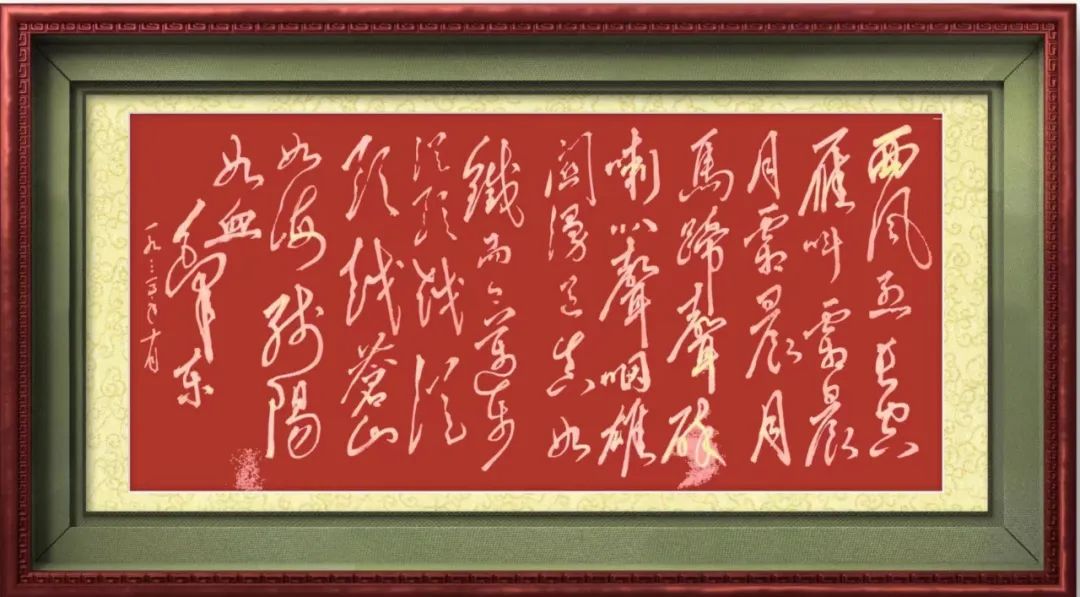 西风烈長空
雁叫霜晨
月霜晨月
馬蹄聲碎
喇叭聲咽雄
關漫道真如
鐵而今邁步
從頭越從
頭越蒼山
如海殘陽
如血
毛澤東
一九三五年十月